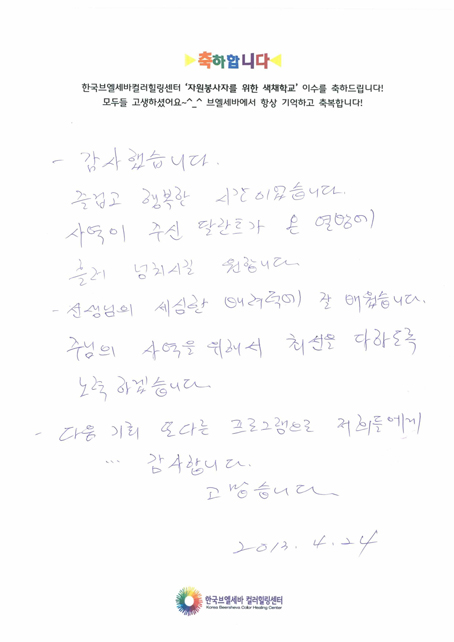 축하합니다
한국브엘세바컬러힐링센터 '자원봉사자를 위한 색채학교' 이수를 축하드립니다!
모두들 고생하셨어요~^_^ 브엘세바에서 항상 기억하고 축복합니다!
- 감사했습니다.
즐겁고 행복한 시간이었습니다.
사역이 주신 달란트가 온 열방에
흘러 넘치시길 원합니다.
- 선생님의 세심한 배려덕에 잘 배웠습니다.
주님의 사역을 위해서 최선을 다하도록
노력 하겠습니다.
- 다음 기회 또다른 프로그램으로 저희들에게
... 감사합니다.
고맙습니다
2013. 4. 24
한국브엘세바 컬러힐링센터
Korea Beersheva Color Healing Center